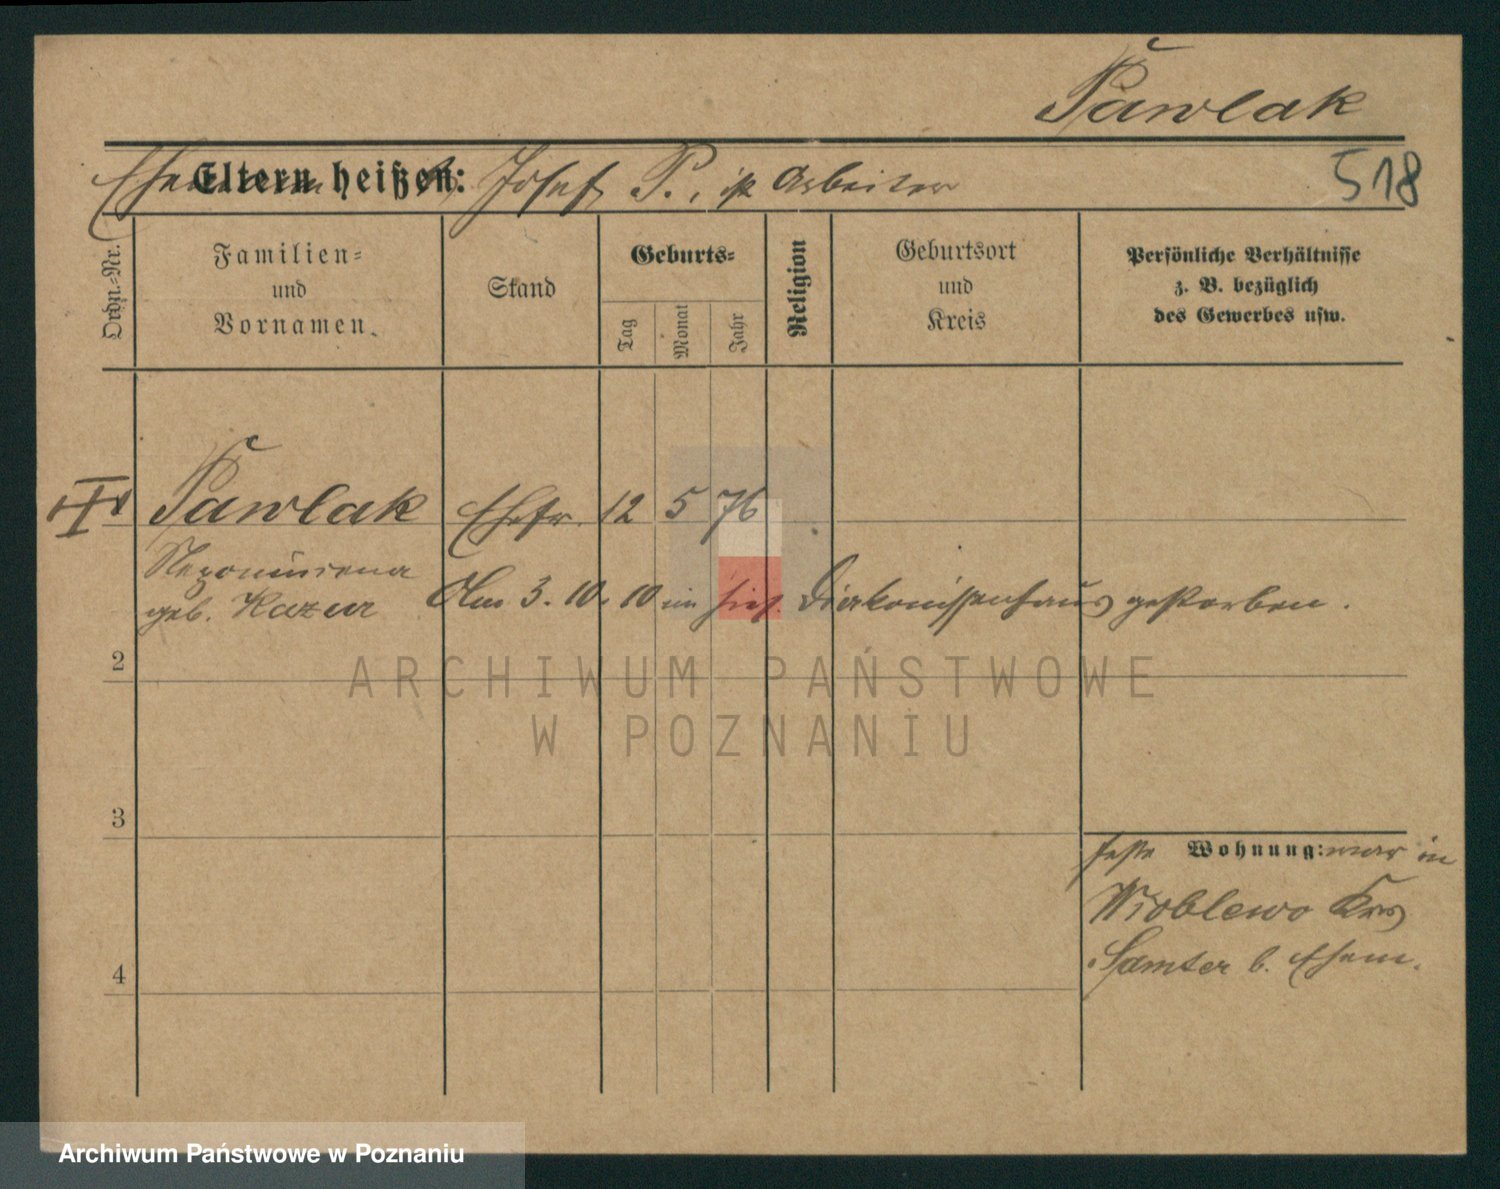 Pawlak
Eltern heißen: Josef P., ist Arbeiter
518
Ordn.-Nr.
Familien-
und
Vornamen.
Stand
Geburts-
Tag
Monat
Jahr
Religion
Geburtsort
und
Kreis
Persönliche Verhältnisse
z. B. bezüglich
des Gewerbes usw.
Pawlak Ehefr. 12 5 76
geb. Kazur
Am 3. 10. 10 im hies. Diakonissenhaus gestorben.
2
3
4
feste Wohnung: war in
Wroblewo Krs
Samter b. Ehem.
ARCHIWUM PAŃSTWOWE
W POZNANIU
Archiwum Państwowe w Poznaniu